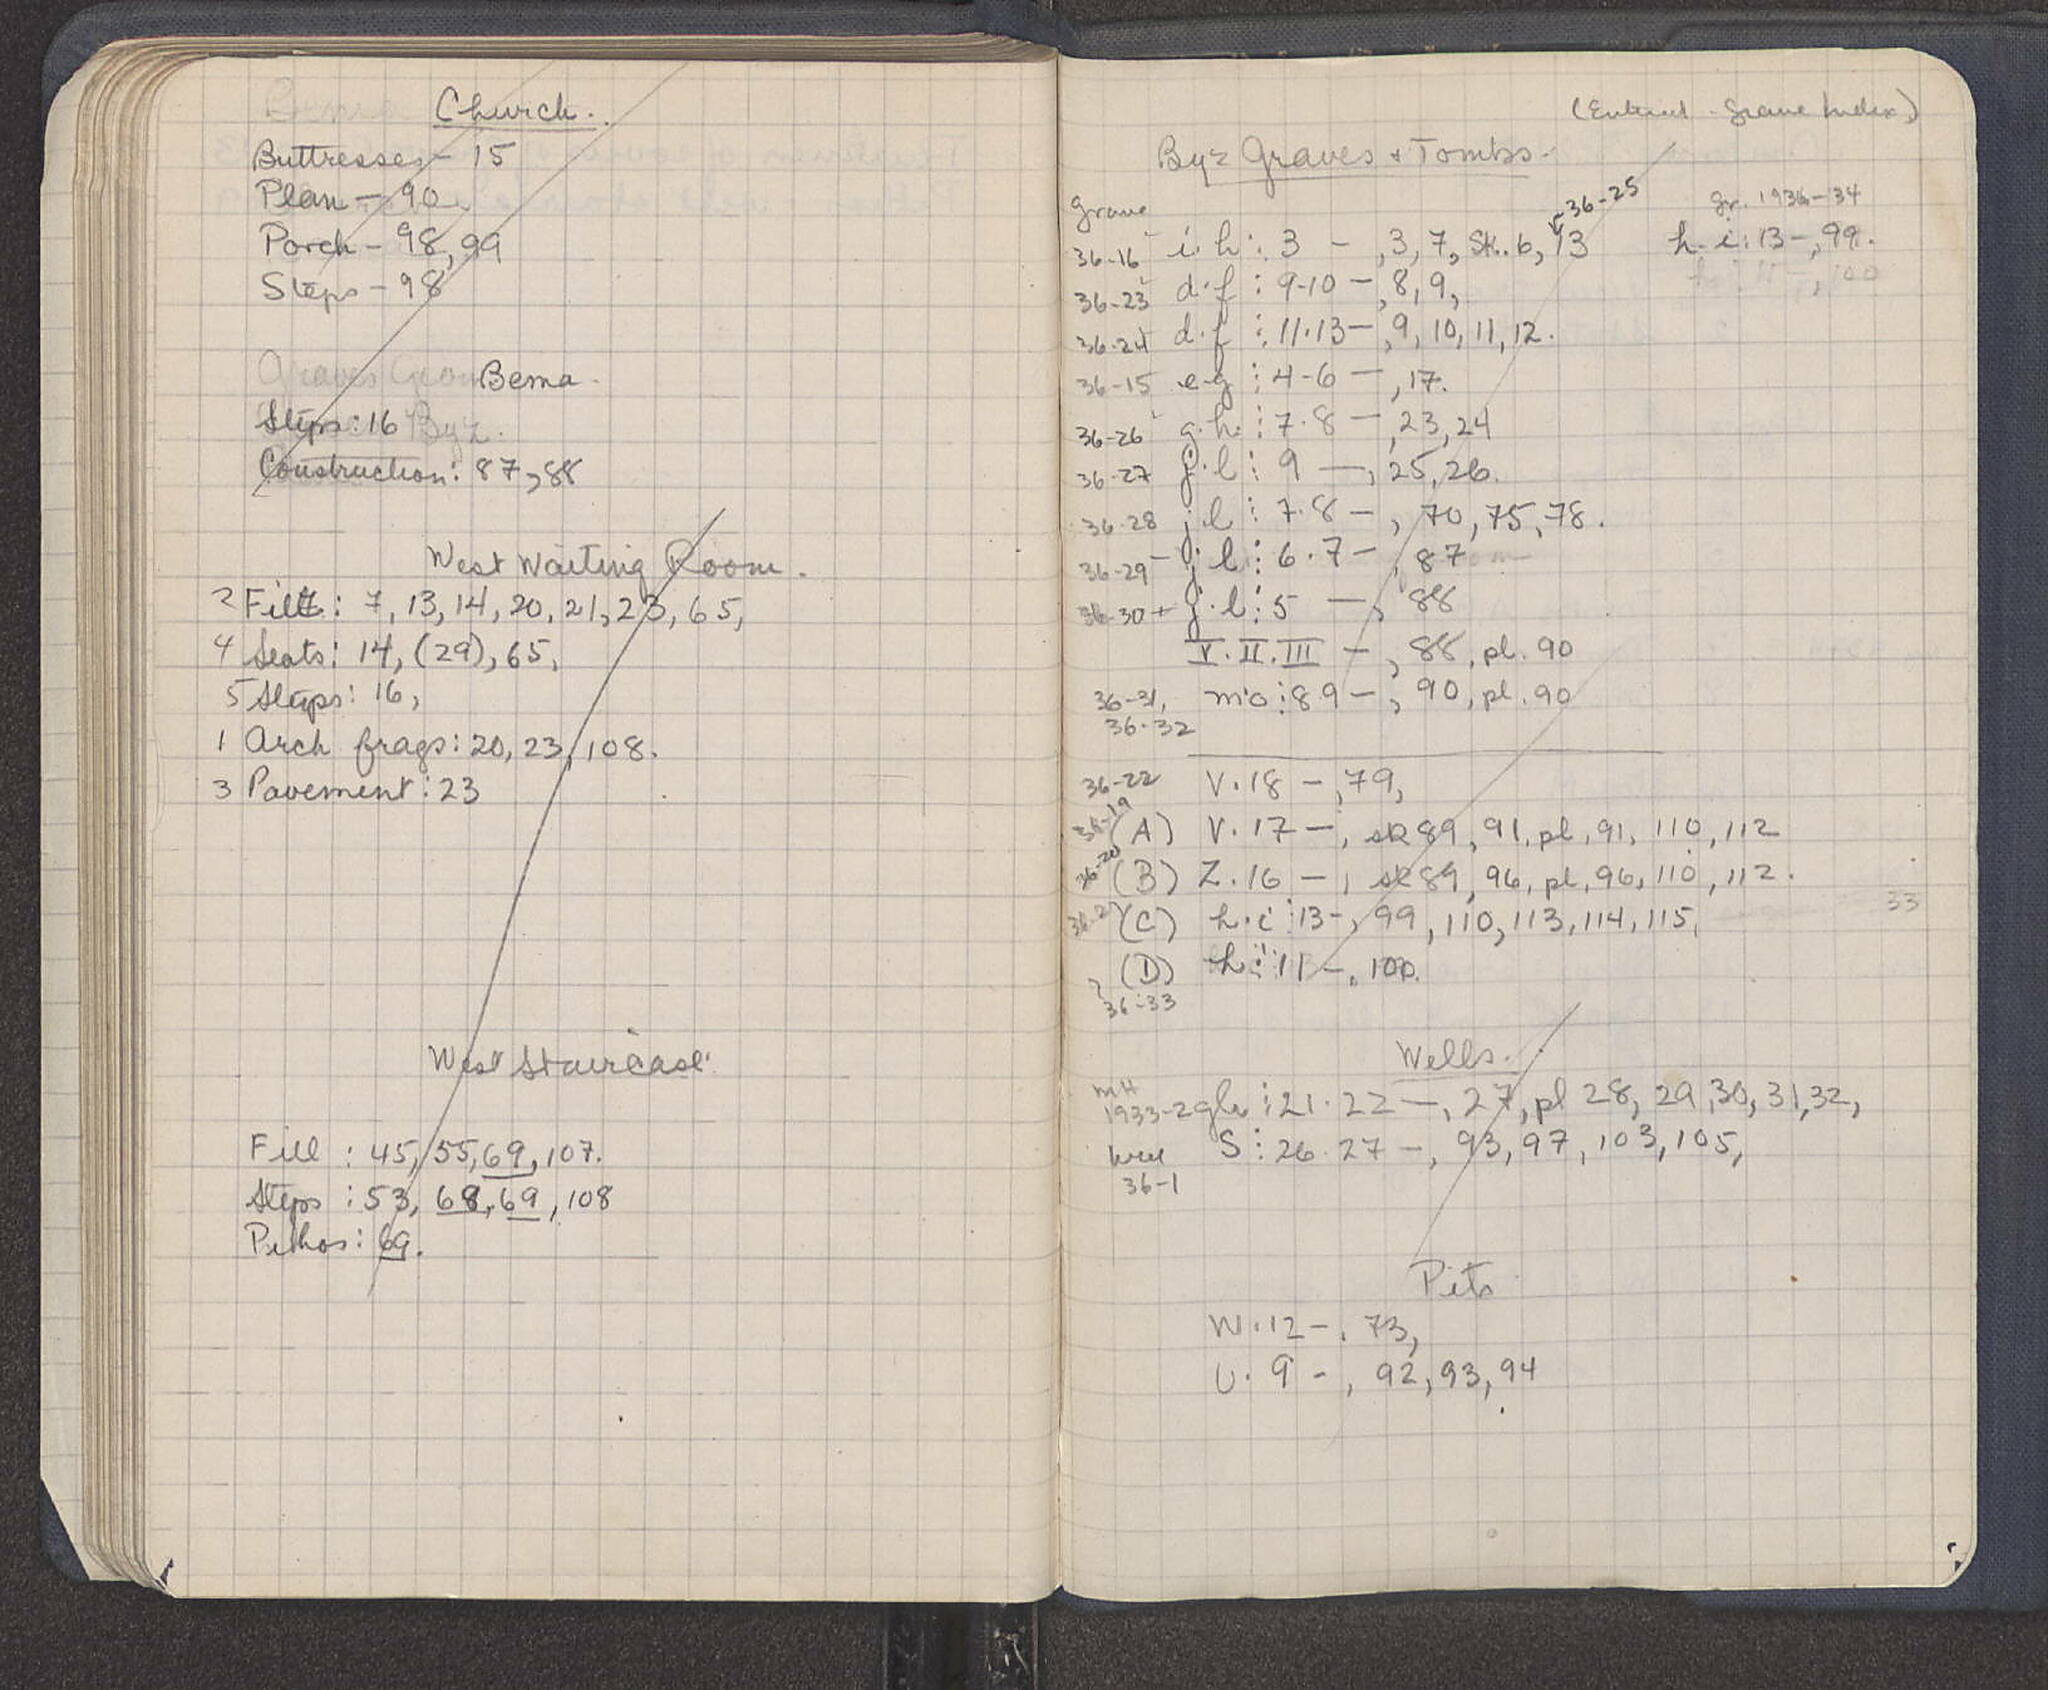 Church.
Buttresses - 15
Plan - 90
Porch - 98, 99
Steps - 98
Bema.
Steps: 16 Byz.
Construction: 87, 88
West Waiting Room.
2 Fill: 7, 13, 14, 20, 21, 23, 65,
4 Seats: 14, (29), 65,
5 Steps: 16,
1 Arch frags: 20, 23, 108.
3 Pavement: 23
West Staircase
Fill: 45, 55, 69, 107.
Steps: 53, 68, 69, 108
Pithos: 69.
(Entered - Grave Index)
Byz Graves + Tombs.
grave
36-25
gr. 1936-34
36-16 i.h: 3 -, 3, 7, sk. 6, 13 h.i: 13-, 99.
h: 11 -, 100
36-23 d.f: 9-10 -, 8, 9,
36-24 d.f: 11.13 -, 9, 10, 11, 12.
36-15 e-g: 4-6 -, 17.
36-26 g.h.: 7.8 -, 23, 24
36-27 j.l: 9 -, 25, 26.
36-28 j.l: 7.8 -, 70, 75, 78.
36-29 j.l: 6.7 -, 87
36-30 + j.l: 5 -, 88
V.II.III -, 88, pl. 90
36-31, m'o: 8 9 -, 90, pl. 90
36-32
36-22 V.18 -, 79,
36-19 (A) V.17 -, sk 89, 91, pl, 91, 110, 112
36-20 (B) Z.16 -, sk 89, 96, pl, 96, 110, 112.
33
(C) h.i: 13-, 99, 110, 113, 114, 115,
(D) h: 11 -, 100.
? 36-33
Wells.
MH
1933-2 gh: 21.22 -, 27, pl 28, 29, 30, 31, 32,
well S: 26.27 -, 93, 97, 103, 105,
36-1
Pits
W.12 -, 73,
U.9 -, 92, 93, 94